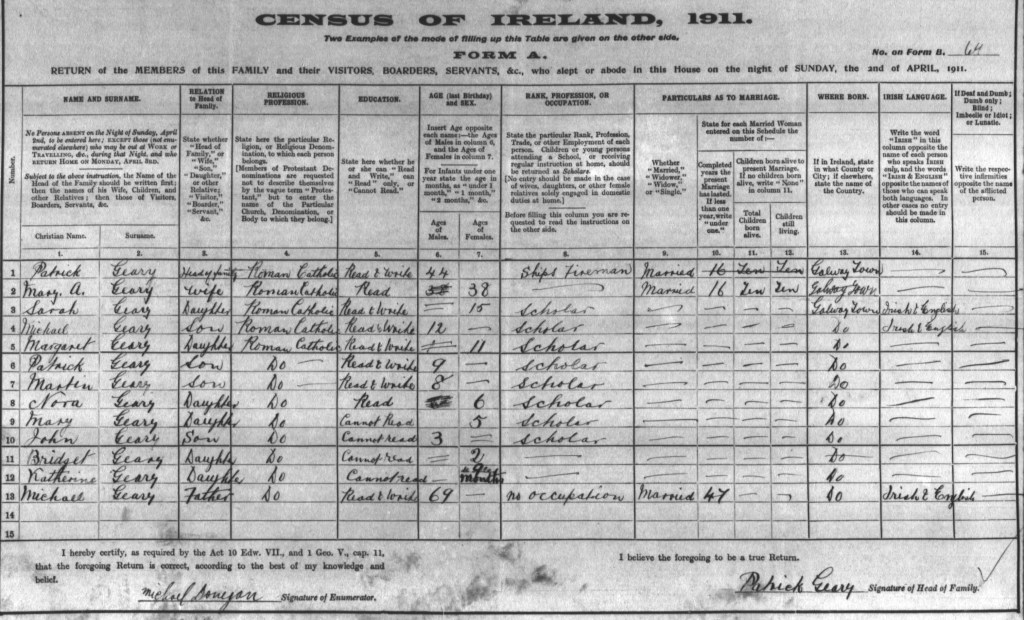 CENSUS OF IRELAND, 1911.
Two Examples of the mode of filling up this Table are given on the other side.
FORM A.
No. on Form B. 64
RETURN of the MEMBERS of this FAMILY and their VISITORS, BOARDERS, SERVANTS, &c., who slept or abode in this House on the night of SUNDAY, the 2nd of APRIL, 1911.
Number.
NAME AND SURNAME.
No Persons ABSENT on the Night of Sunday, April 2nd, to be entered here; EXCEPT those (not enumerated elsewhere) who may be out at WORK or TRAVELLING, &c., during that Night, and who RETURN HOME ON MONDAY, APRIL 3RD.
Subject to the above instruction, the Name of the Head of the Family should be written first; then the names of his Wife, Children, and other Relatives; then those of Visitors, Boarders, Servants, &c.
Christian Name.
Surname.
RELATION to Head of Family.
State whether "Head of Family," or "Wife," "Son," "Daughter," or other Relative; "Visitor," "Boarder," "Servant," &c.
RELIGIOUS PROFESSION.
State here the particular Religion, or Religious Denomination, to which each person belongs.
[Members of Protestant Denominations are requested not to describe themselves by the vague term "Protestant," but to enter the name of the Particular Church, Denomination, or Body to which they belong.]
EDUCATION.
State here whether he or she can "Read and Write," can "Read" only, or "Cannot Read."
AGE (last Birthday) and SEX.
Insert Age opposite each name:—the Ages of Males in column 6, and the Ages of Females in column 7.
For Infants under one year state the age in months, as "under 1 month," "1 month," "2 months," &c.
Ages of Males.
Ages of Females.
RANK, PROFESSION, OR OCCUPATION.
State the particular Rank, Profession, Trade, or other Employment of each person. Children or young persons attending a School, or receiving regular instruction at home, should be returned as Scholars.
[No entry should be made in the case of wives, daughters, or other female relatives solely engaged in domestic duties at home.]
Before filling this column you are requested to read the instructions on the other side.
PARTICULARS AS TO MARRIAGE.
Whether "Married," "Widower," "Widow," or "Single."
State for each Married Woman entered on this Schedule the number of :—
Completed years the present Marriage has lasted. If less than one year, write "under one."
Children born alive to present Marriage. If no children born alive, write "None" in column 11.
Total Children born alive.
Children still living.
WHERE BORN.
If in Ireland, state in what County or City; if elsewhere, state the name of the Country.
IRISH LANGUAGE.
Write the word "IRISH" in this column opposite the name of each person who speaks IRISH only, and the words "IRISH & ENGLISH" opposite the names of those who can speak both languages. In other cases no entry should be made in this column.
If Deaf and Dumb; Dumb only; Blind; Imbecile or Idiot; or Lunatic.
Write the respective infirmities opposite the name of the afflicted person.
1. 2. 3. 4. 5. 6. 7. 8. 9. 10. 11. 12. 13. 14. 15.
1 Patrick Geary Head of family Roman Catholic Read & Write 44 — Ships Fireman Married 16 Ten Ten Galway Town — —
2 Mary. A. Geary Wife Roman Catholic Read 38 Married 16 Ten Ten Galway Town — —
3 Sarah Geary Daughter Roman Catholic Read & Write — 15 Scholar — — — — Galway Town Irish & English —
4 Michael Geary Son Roman Catholic Read & Write 12 — Scholar — — — — Do Irish & English
5 Margaret Geary Daughter Roman Catholic Read & Write — 11 Scholar — — — — Do — —
6 Patrick Geary Son Do — Read & Write 9 — Scholar — — — — Do — —
7 Martin Geary Son Do — Read & Write 8 — Scholar — — — — Do — —
8 Nora Geary Daughter Do Read 6 Scholar — — — — Do — —
9 Mary Geary Daughter Do Cannot Read 5 Scholar — — — — Do — —
10 John Geary Son Do Cannot read 3 — Scholar — — — — Do — —
11 Bridget Geary Daughter Do Cannot read — 2 — — — — — Do — —
12 Katherine Geary Daughter Do Cannot read — months — — — — — Do — —
13 Michael Geary Father Do Read & Write 69 — no occupation Married 47 — — Do Irish & English —
14
15
I hereby certify, as required by the Act 10 Edw. VII., and 1 Geo. V., cap. 11, that the foregoing Return is correct, according to the best of my knowledge and belief.
Michael Donegan Signature of Enumerator.
I believe the foregoing to be a true Return.
Patrick Geary Signature of Head of Family.